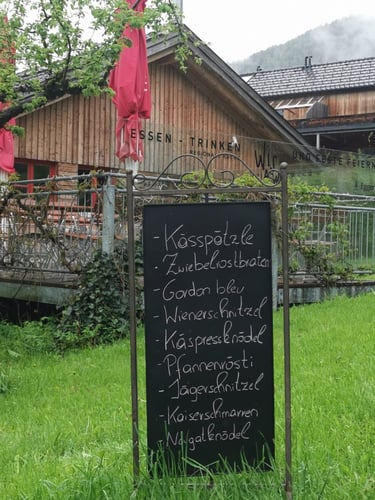 ESSEN - TRINKEN
WIR
UND FESTE FEIERN
- Kässpätzle
- Zwiebelrostbraten
- Gordon bleu
- Wienerschnitzel
- Käspressknödel
- Pfannenrösti
- Jägerschnitzel
- Kaiserschmarren
- Nougatknödel